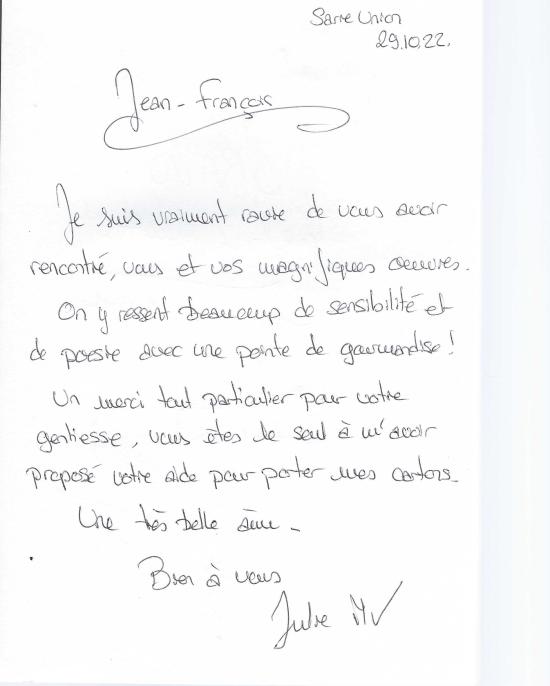 Sarre Union
29.10.22.
Jean-François
Je suis vraiment ravie de vous avoir
rencontré, vous et vos magnifiques oeuvres.
On y ressent beaucoup de sensibilité et
de poesie avec une pointe de gourmandise !
Un merci tout particulier pour votre
gentiesse, vous êtes le seul à m'avoir
proposé votre aide pour porter mes cartons.
Une très belle âme.
Bien à vous
Julie MV